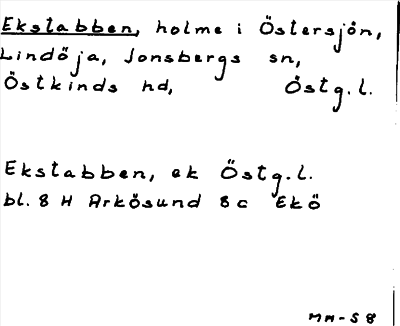 Ekstabben, holme i Östersjön,
Lindöja, Jonsbergs sn,
Östkinds hd, Östg.l.
Ekstabben, ek Östg.l.
bl. 8 H Arkösund 8 c Ekö
MM-58